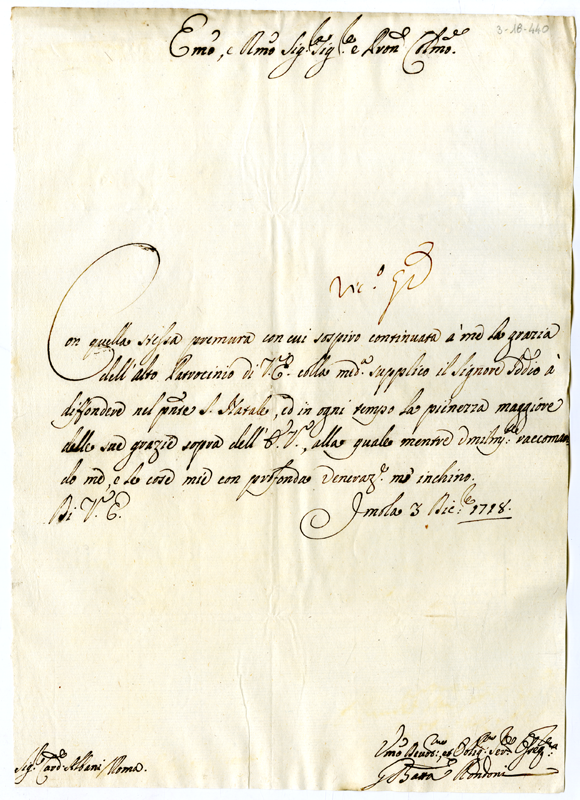 3-18-440
Emo, e Rmo Sig.re Sig.re e Pron Colmo.
Con quella stessa premura con cui sospiro continuata à me la grazia
dell'alto Patrocinio di V.E. colla med.a supplico il Signore Iddio à
diffondere nel pnte S. Natale, ed in ogni tempo la pienezza maggiore
delle sue grazie sopra dell'E.V., alla quale mentre raccoman
do me, e le cose mie con profonda veneraz.e me inchino.
Di V.E. Imola 3 Dic.re 1718.
Vmo Devot.mo, et Oblig.mo Ser.re
Sig.r Card.e Albani Roma. Rondoni